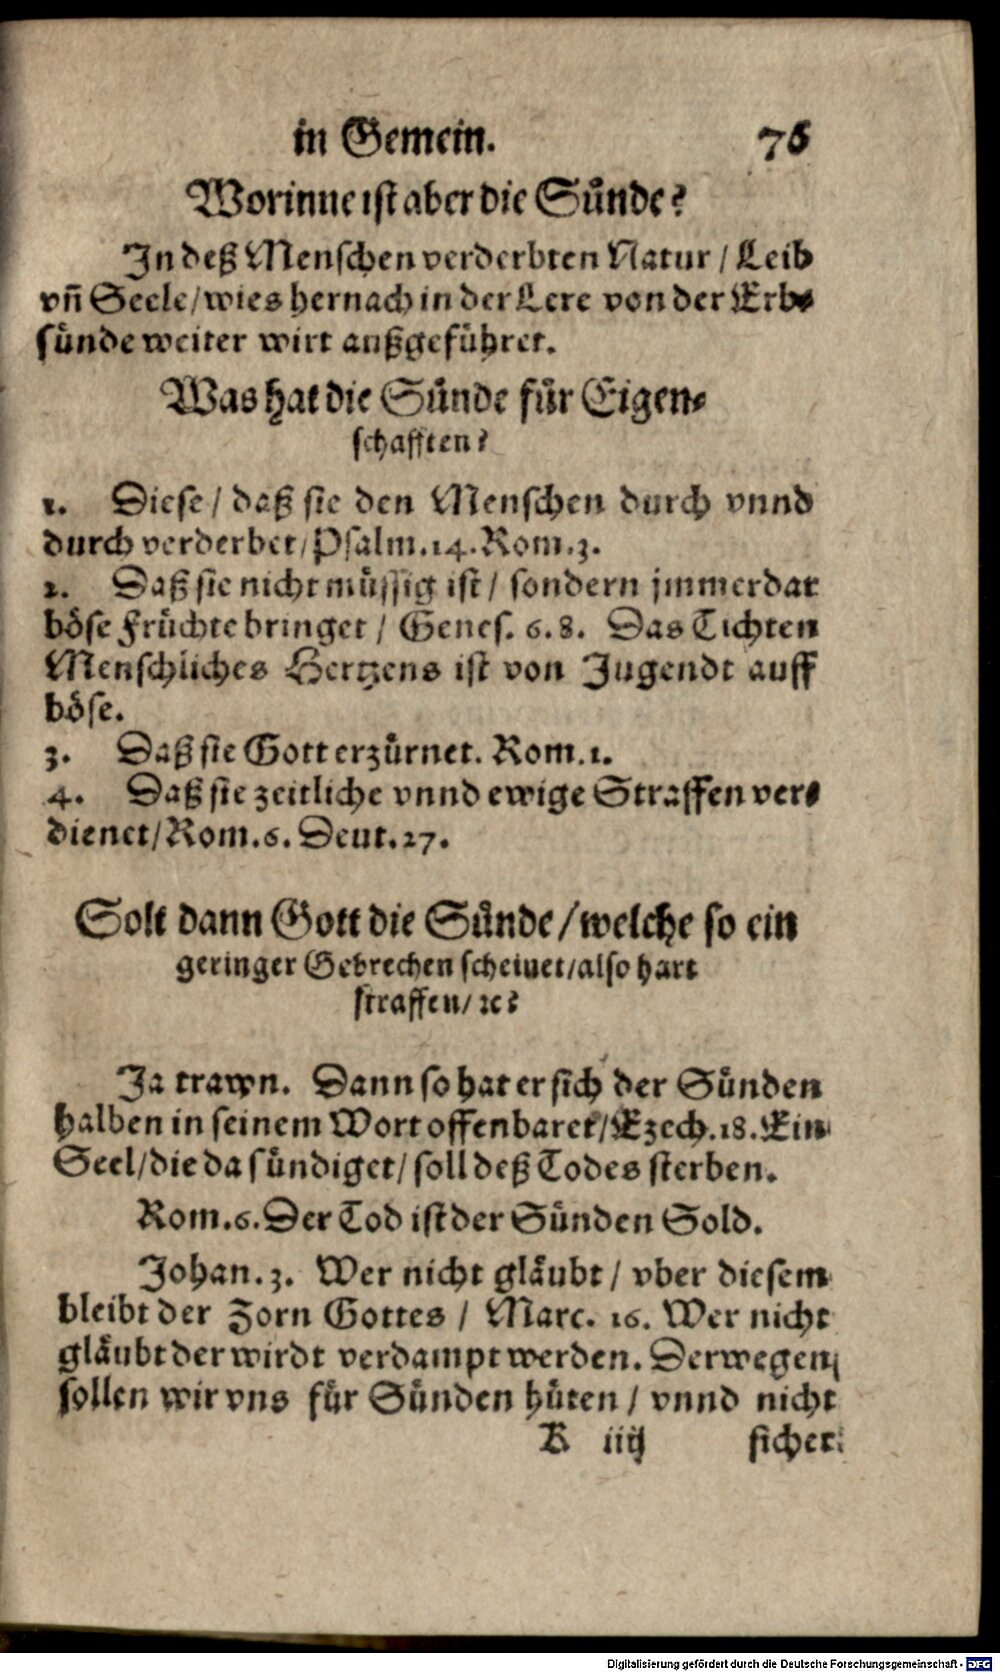 in Gemein. 76
Worinne ist aber die Sünde?
In deß Menschen verderbten Natur / Leib
vñ Seele / wies hernach in der Lere von der Erb⸗
sünde weiter wirt außgeführet.
Was hat die Sünde für Eigen⸗
schafften?
1. Diese / daß sie den Menschen durch vnnd
durch verderbet / Psalm. 14. Rom. 3.
2. Daß sie nicht müssig ist / sondern jmmerdar
böse Früchte bringet / Genes. 6. 8. Das Tichten
Menschliches Hertzens ist von Jugendt auff
böse.
3. Daß sie Gott erzürnet. Rom. 1.
4. Daß sie zeitliche vnnd ewige Straffen ver⸗
dienet / Rom. 6. Deut. 27.
Solt dann Gott die Sünde / welche so ein
geringer Gebrechen scheinet / also hart
straffen / ꝛc?
Ja trawn. Dann so hat er sich der Sünden
halben in seinem Wort offenbaret / Ezech. 18. Ein
Seel / die da sündiget / soll deß Todes sterben.
Rom. 6. Der Tod ist der Sünden Sold.
Johan. 3. Wer nicht gläubt / vber diesem
bleibt der Zorn Gottes / Marc. 16. Wer nicht
gläubt der wirdt verdampt werden. Derwegen
sollen wir vns für Sünden hüten / vnnd nicht
K iiij sicher
Digitalisierung gefördert durch die Deutsche Forschungsgemeinschaft - DFG